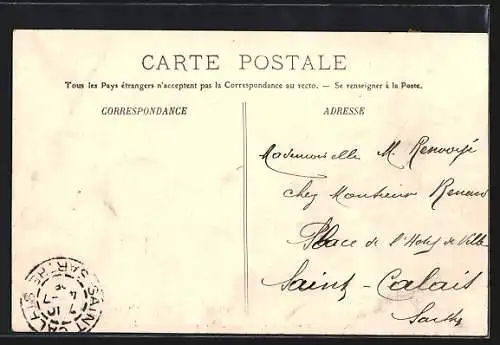 CARTE POSTALE
Tous les Pays étrangers n'acceptent pas la Correspondance au recto. — Se renseigner à la Poste.
CORRESPONDANCE
ADRESSE
Mademoiselle M.
chez Monsieur
Place de l'Hotel de Ville
Saint-Calais
Sarthe
SAINT CALAIS
SARTHE